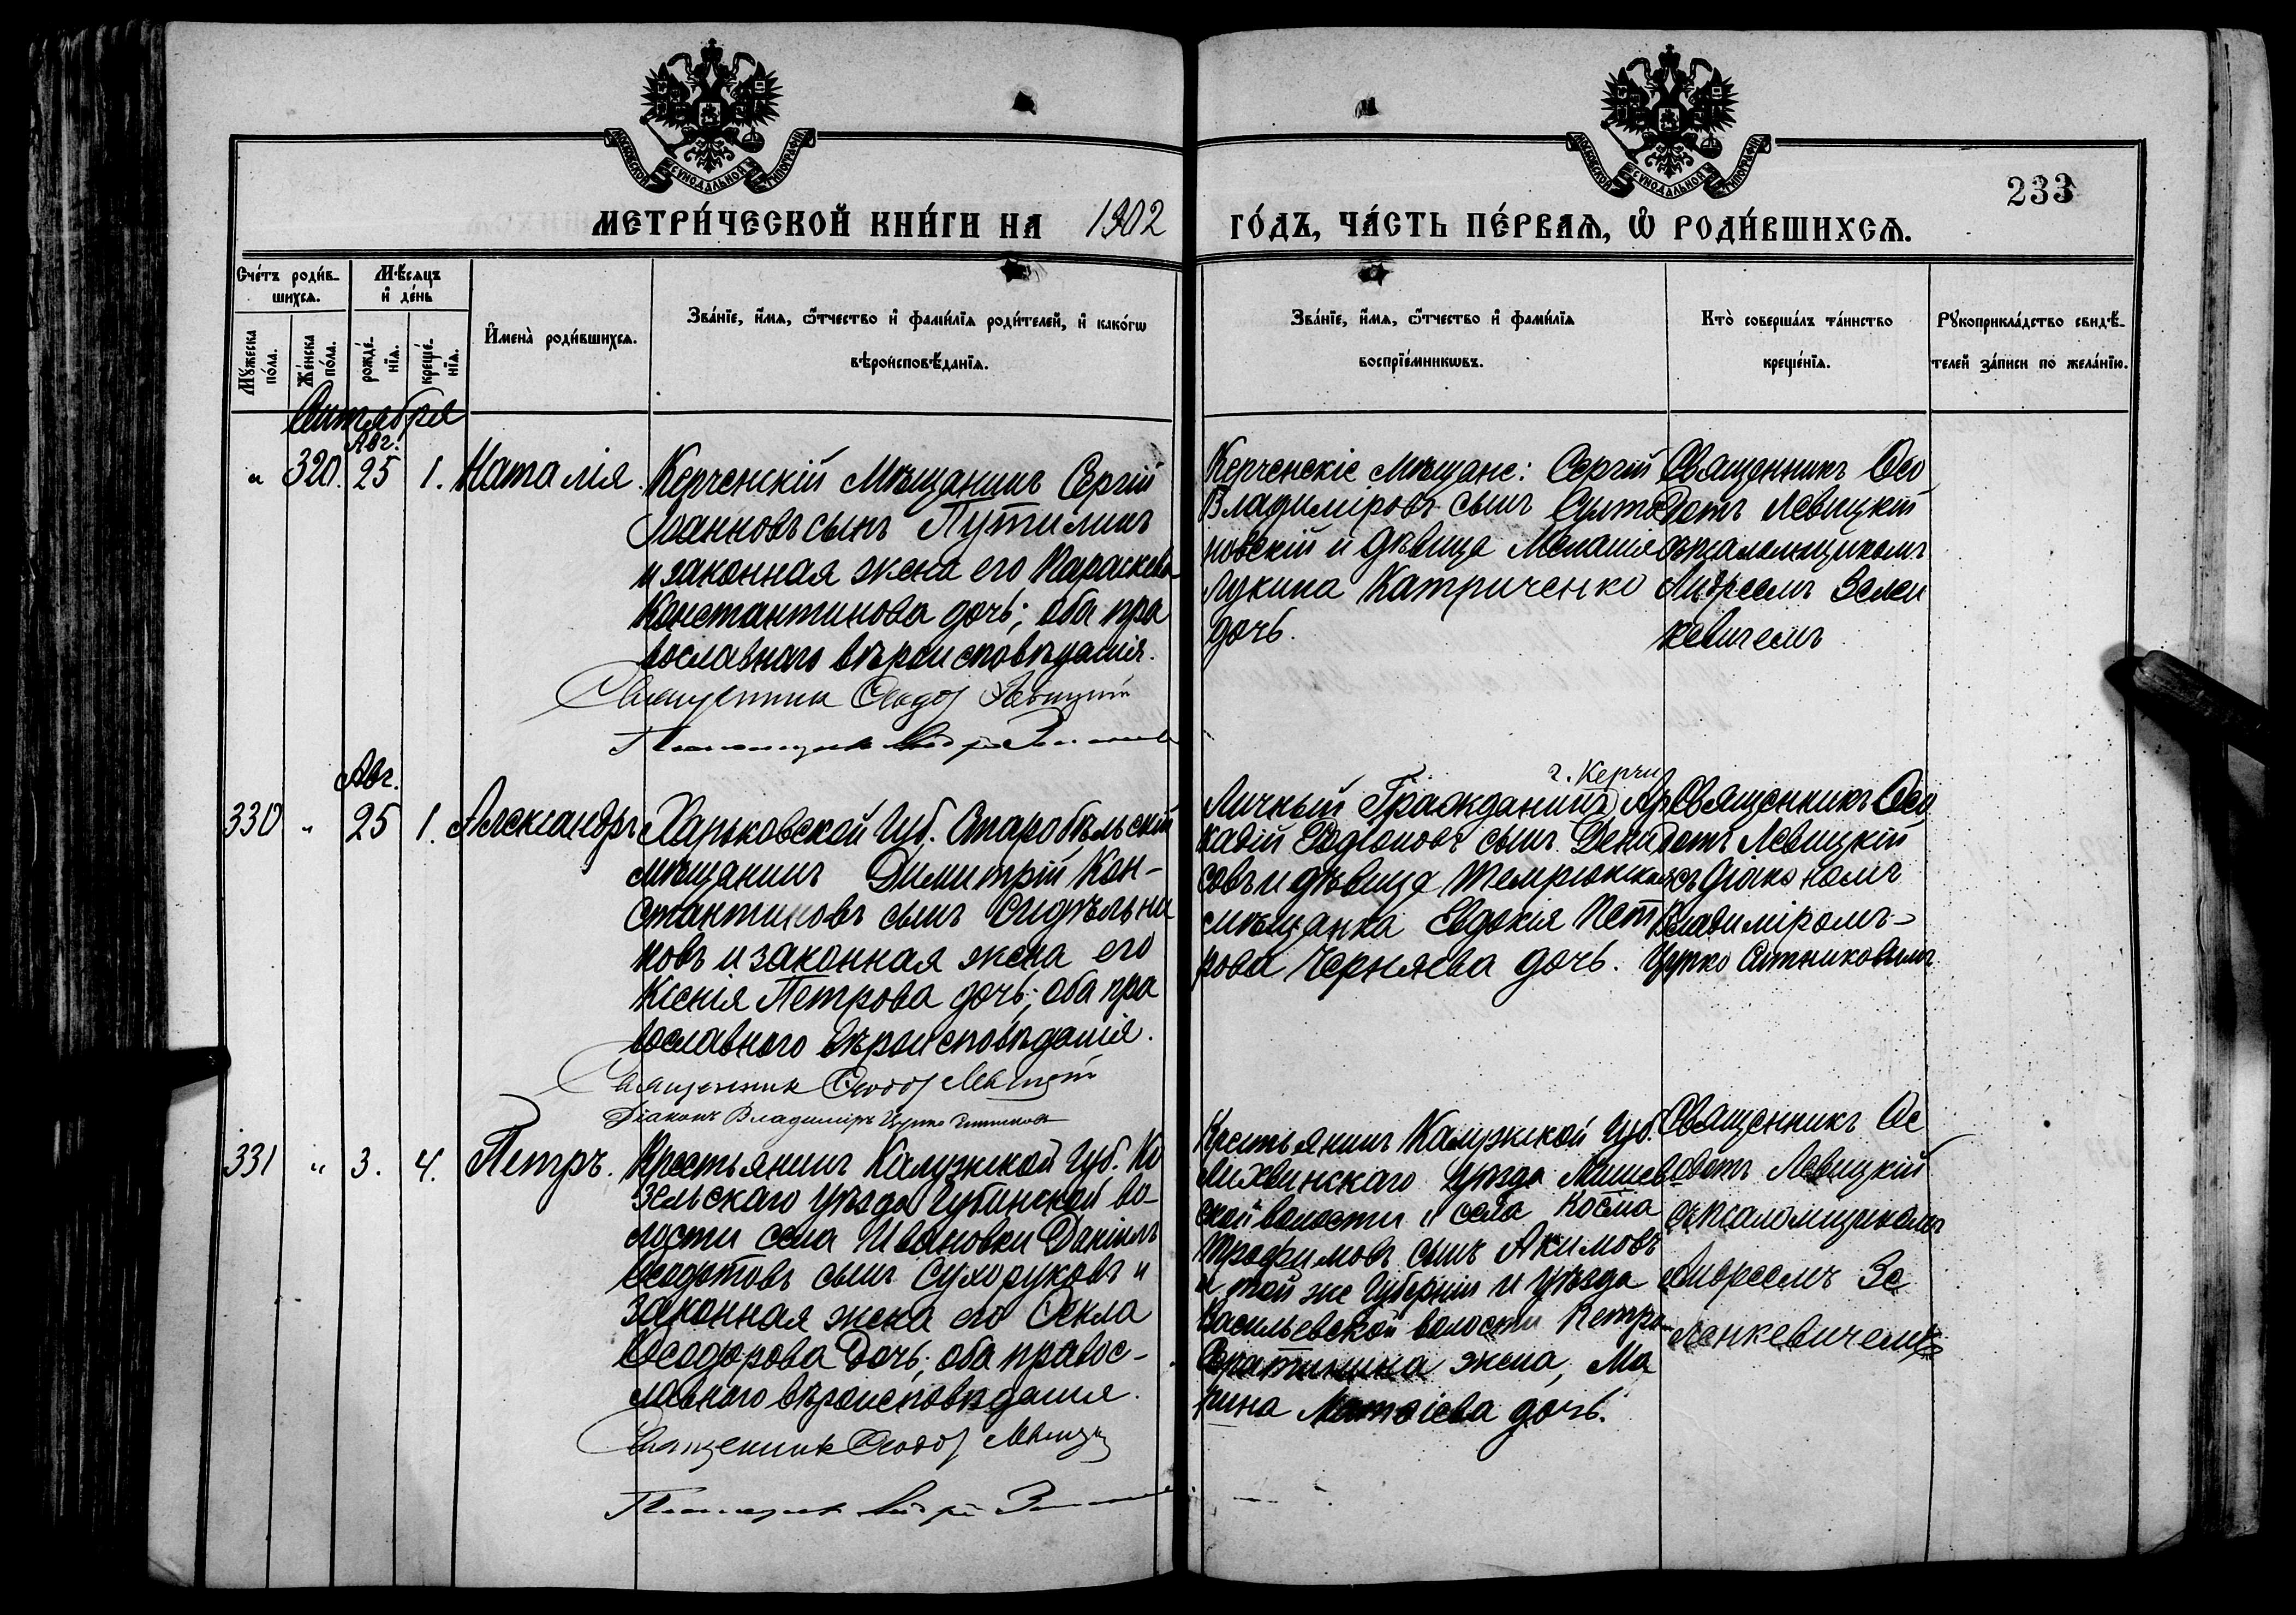 МОСКОВСКОЙ СУНОДАЛЬНОЙ ТИПОГРАФІИ
МОСКОВСКОЙ СУНОДАЛЬНОЙ ТИПОГРАФІИ
233
МЕТРИ́ЧЕСКОЙ КНИ́ГИ НА 1902 ГО́ДЪ, ЧА́СТЬ ПЕ́РВАЯ, Ѿ РОДИ́ВШИХСЯ.
Сче́тъ роди́в-
шихся.
Му́жеска по́ла.
Же́нска по́ла.
Мѣ́сяцъ
и҆ де́нь
рожде́-
нїя.
креще́-
нїя.
И҆мена̀ роди́вшихся.
Зва́нїе, и҆́мя, ѻ҆́тчество и҆ фами́лїя роди́телей, и҆ како́гѡ
вѣроисповѣ́данїя.
Зва́нїе, и҆́мя, ѻ҆́тчество и҆ фами́лїя
воспрїе́мникѡвъ.
Кто̀ соверша́лъ та́инство
креще́нїя.
Рꙋкоприкла́дство свидѣ́-
телей за́писи по жела́нїю.
Сентября
Авг.
" 320. 25 1. Наталія.
Керченскій Мѣщанинъ Сергій
Іоанновъ сынъ Путилинъ
и законная жена его Параскева
Константинова дочь; оба пра
вославнаго вѣроисповѣданія.
Священникъ Ѳеодот Левицкій
Псаломщикъ Андрей
Керченскіе мѣщане: Сергій
Владиміровъ сынъ Султа
новскій и дѣвица Меланія
Лукина Катриченко
дочь.
Священникъ Ѳео
дотъ Левицкій
съ псаломщикомъ
Андреемъ Зелен
кевичемъ
Авг.
330 " 25 1. Александръ
Харьковской Губ. Старобѣльскій
мѣщанинъ Димитрій Кон-
стантиновъ сынъ Сидѣльни
ковъ и законная жена его
Ксенія Петрова дочь; оба пра
вославного вѣроисповѣданія.
Священникъ Ѳеодот Левицкій
Діаконъ Владиміръ Цупко Ситниковъ
г. Керчи
Личный Гражданинъ Ар
кадій Родіоновъ сынъ Дени
совъ и дѣвица Темрюкская
мѣщанка Евдокія Пет
рова Черняева дочь.
Священникъ Ѳео
дотъ Левицкій
съ діакономъ
Владиміромъ-
Цупко Ситниковымъ
331 " 3. 4. Петръ.
Крестьянинъ Калужской Губ. Ко
зельскаго уѣзда Губинской во-
лости села Ивановки Даніилъ
Ѳеодотовъ сынъ Сухоруковъ и
законная жена его Ѳекла
Ѳеодорова дочь; оба правос-
лавного вѣроисповѣданія.
Священникъ Ѳеодот Левицкій
Псаломщикъ Андрей
Крестьянинъ Калужской Губ.
Лихвинскаго уѣзда
ской волости и села Косма
Трофимовъ сынъ Акимовъ
и той же Губерніи и уѣзда
Васильевской волости
жена, Ма
рина Матѳіева дочь.
Священникъ Ѳе
одотъ Левицкій
съ псаломщикомъ
Андреемъ Зе
ленкевичемъ